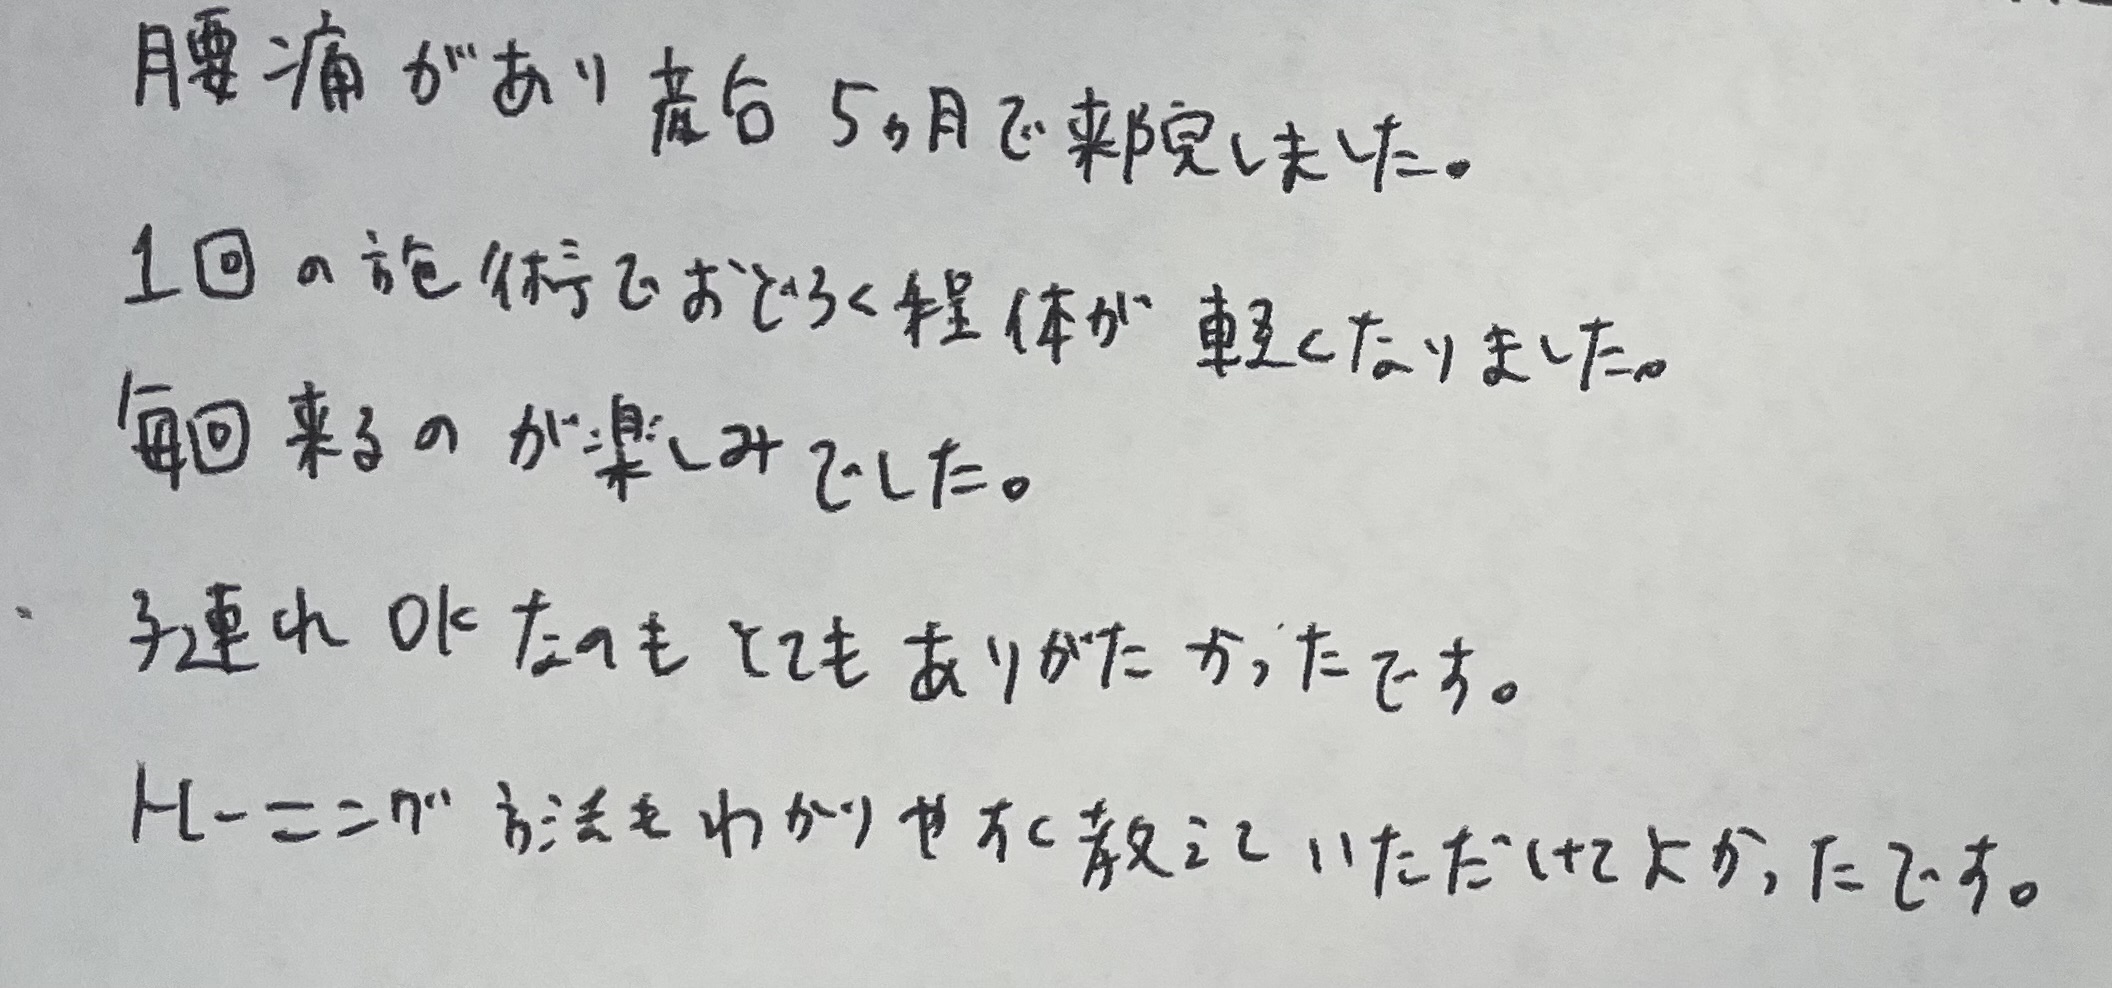 腰痛があり産后5ヶ月で来院しました。
1回の施術でおどろく程体が軽くなりました。
毎回来るのが楽しみでした。
子連れOKなのもとてもありがたかったです。
トレーニング方法もわかりやすく教えていただけてよかったです。